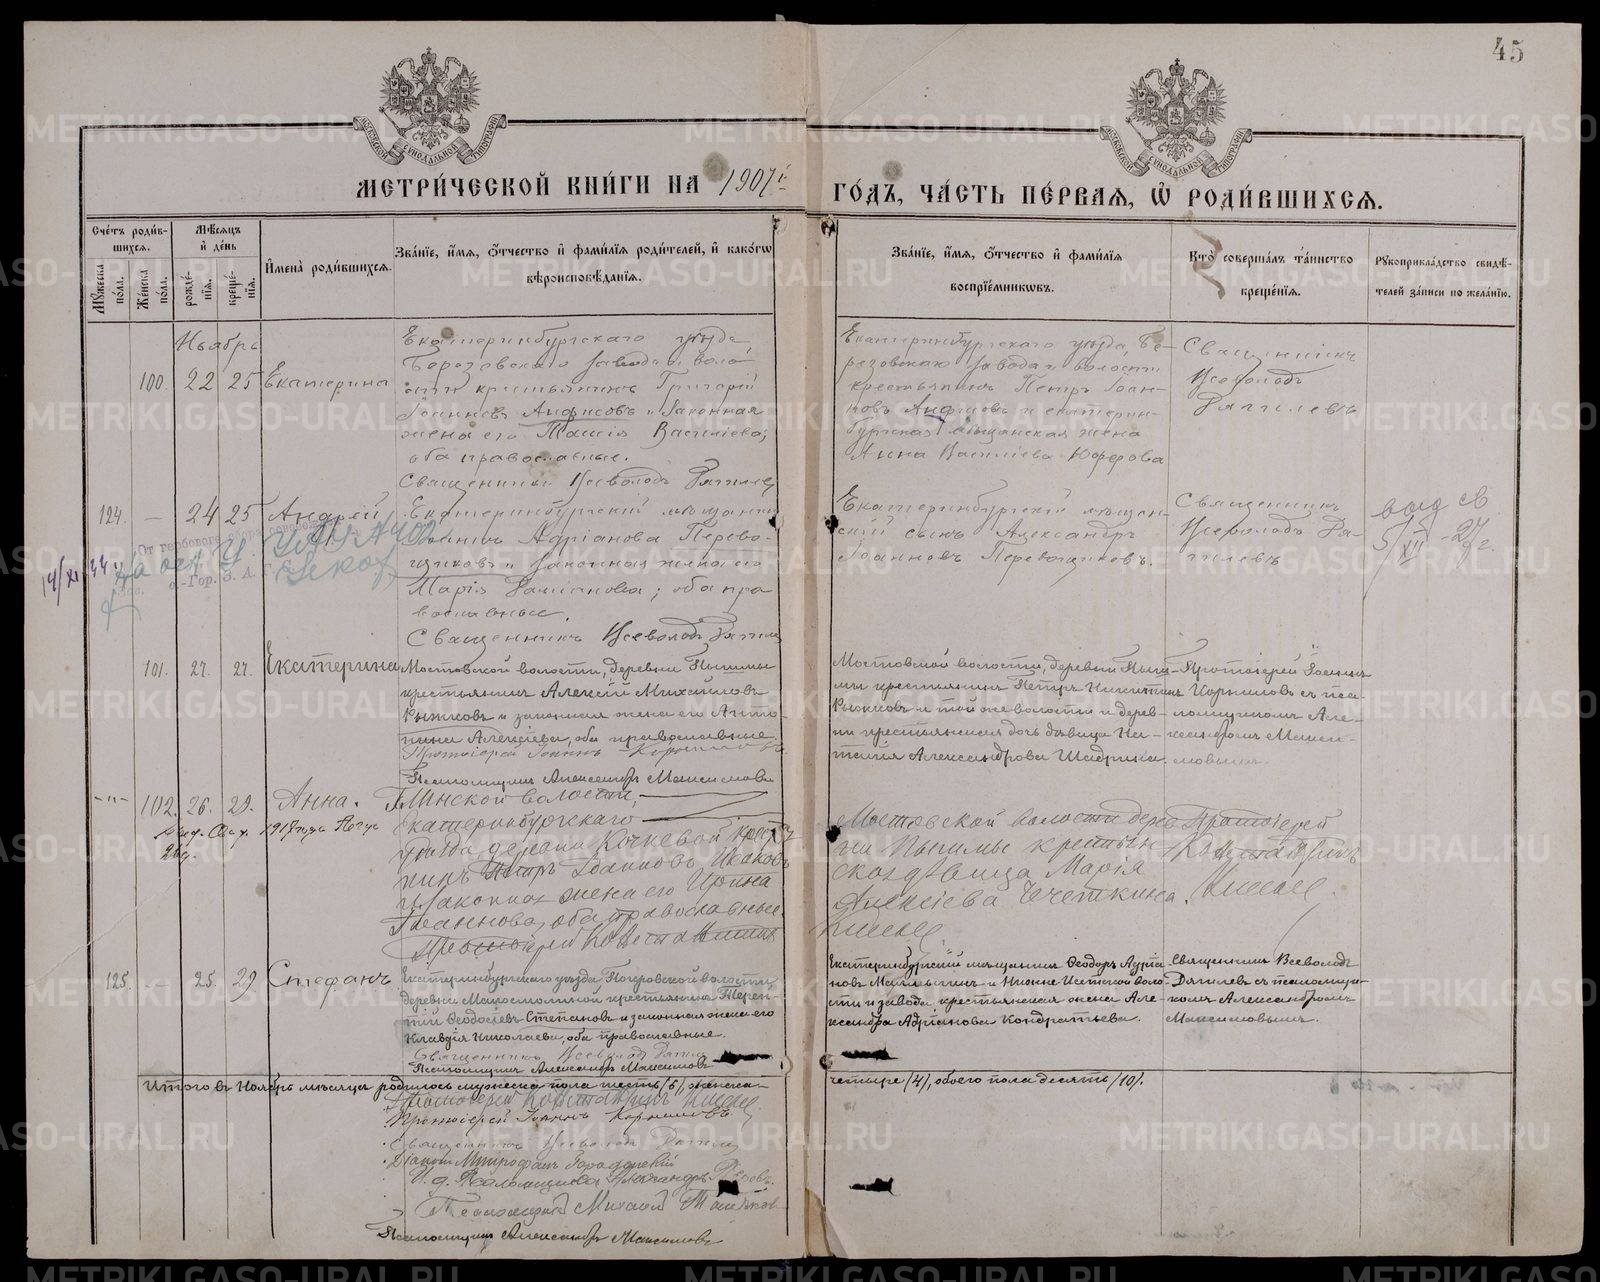 45
МЕТРИ́ЧЕСКОЙ КНИ́ГИ НА 1907й ГО́ДЪ, ЧА́СТЬ ПЕ́РВАЯ, Ѡ РОДИ́ВШИХСЯ.
Сче́тъ роди́в-
шихся.
Мѣ́сяцъ
и́ де́нь
Му́жеска по́ла.
Же́нска по́ла.
рожде́-
нїя.
креще́-
нїя.
И́мена̀ роди́вшихся.
Зва́нїе, и́мя, о́тчество и́ фами́лїя роди́телей, и́ како́гѡ
вѣроисповѣ́данїя.
Зва́нїе, и́мя, о́тчество и́ фами́лїя
воспрїе́мникѡвъ.
Кто̀ соверша́лъ та́инство
креще́нїя.
Рукоприкла́дство свидѣ́-
телей за́писи по жела́нїю.
Ноябрь
100. 22 25 Екатерина
Екатеринбургскаго уѣзда,
Березовскаго завода и воло-
сти крестьянинъ Григорій
Іоанновъ Анфисовъ и законная
жена его Таисія Васильева;
оба православные.
Священникъ Всеволодъ
Екатеринбургскаго уѣзда, Бе-
резовскаго завода и волости
крестьянинъ Петръ Іоан-
новъ Анфисовъ и екатерин-
бургская мѣщанская жена
Анна Васильева Юферова
Священникъ
Всеволодъ
124. — 24 25 Андрей
Екатеринбургскій мѣщанинъ
Адріановъ Перево-
щиковъ и законная жена его
Марія; оба пра-
вославные.
Священникъ Всеволодъ
Екатеринбургскій мѣщан-
скій сынъ Александръ
Іоанновъ Перевощиковъ.
Священникъ
Всеволодъ
5/XII - 27 г.
101. 27. 27. Екатерина
Мостовской волости, деревни Пышмы
крестьянинъ Алексій Михайловъ
Рыжковъ и законная жена его Анто-
нина Алексіева, оба православные.
Протоіерей Іоаннъ Корниловъ.
Псаломщикъ Александръ Максимовъ
Мостовской волости, деревни Пыш-
мы крестьянинъ Петръ Никитинъ
Рыжковъ и той же волости и дерев-
ни крестьянская дочь дѣвица На-
талія Александрова Шадрина.
Протоіерей Іоаннъ
Корниловъ съ пса-
ломщикомъ Але-
ксандромъ Макси-
мовымъ.
-"- 102. 26. 29. Анна.
волости,
Екатеринбургскаго
уѣзда деревни Кочневой крестья-
нинъ Петръ Іоанновъ Исаковъ
и законная жена его Ирина
Іоаннова, оба православные.
Протоіерей
Мостовской волости дерев-
ни Пышмы крестьян-
ская дѣвица Марія
Алексіева Чечеткина.
Протоіерей
Константинъ
125. — 25. 29 Стефанъ
Екатеринбургскаго уѣзда Покровской волости,
деревни крестьянинъ Терен-
тій Ѳеодосіевъ Степановъ и законная жена его
Клавдія Николаева, оба православные.
Священникъ Всеволодъ
Псаломщикъ Александръ Максимовъ
Екатеринбургскій мѣщанинъ Ѳеодоръ Адріа-
новъ и Нижне-Исетской воло-
сти и завода крестьянская жена Але-
ксандра Адріанова Кондратьева.
Священникъ Всеволодъ
съ псаломщи-
комъ Александромъ
Максимовымъ.
Итого въ Ноябрѣ мѣсяцѣ родилось мужеска пола шесть (6), женска-
четыре (4), обоего пола десять (10).
Протоіерей Константинъ
Протоіерей Іоаннъ Корниловъ
Священникъ Всеволодъ
Діаконъ Митрофанъ
И. д. Псаломщика Александръ
Псаломщикъ Михаилъ
Псаломщикъ Александръ Максимовъ
METRIKI.GASO-URAL.RU